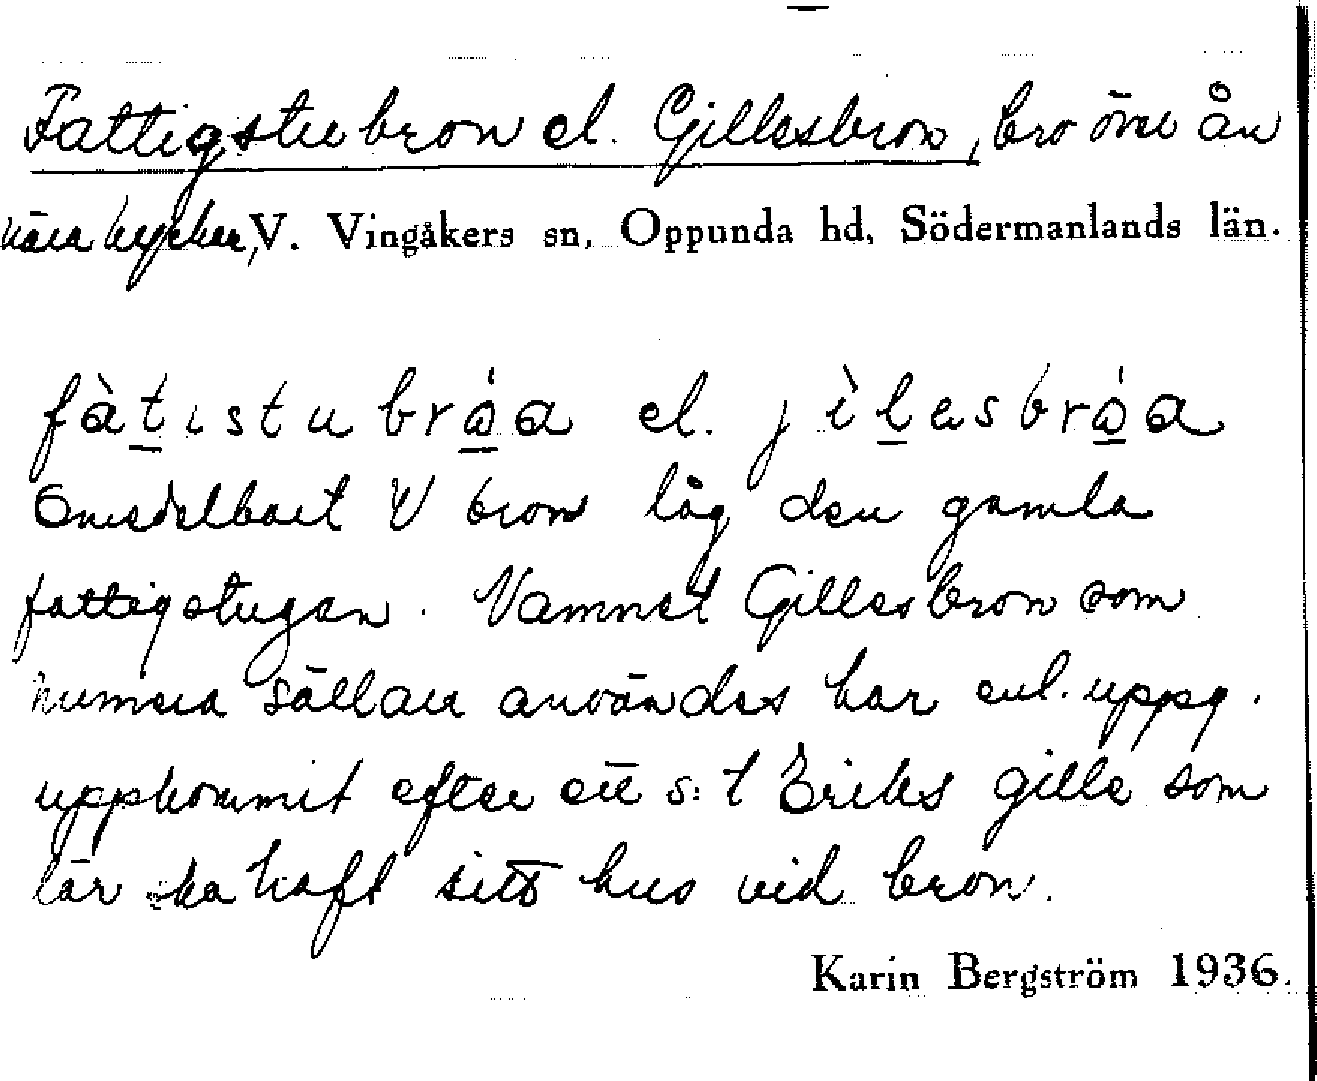 Fattigstubron el. Gillesbron, bro över ån
nära kyrkan, V. Vingåkers sn, Oppunda hd, Södermanlands län.
fàtɩstubrǻa el. jìlesbrǻa
Omedelbart V bron låg den gamla
fattigstugan. Namnet Gillesbron som
numera sällan användes har enl. uppg.
uppkommit efter ett s:t Eriks gille som
lär ha haft sitt hus vid bron.
Karin Bergström 1936.